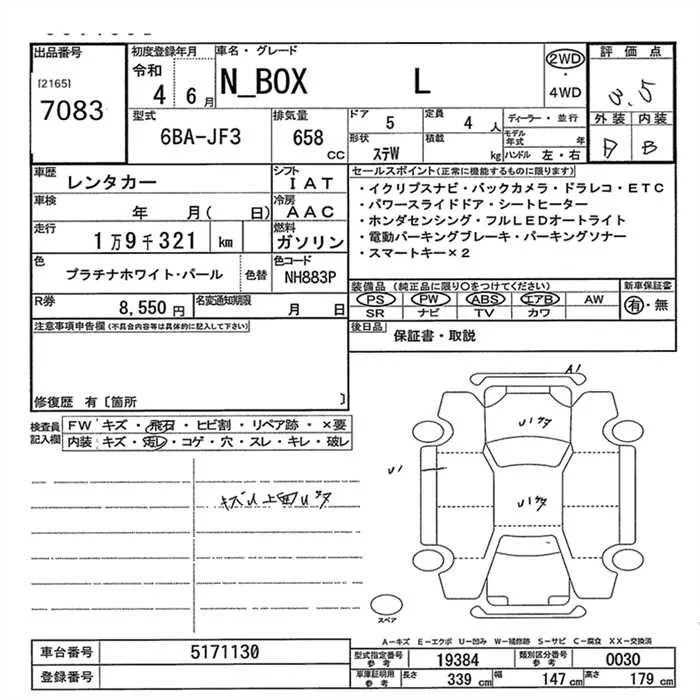 出品番号 初度登録年月 車名・グレード 評価点
[2165] 令和 N_BOX L 2WD ・ 4WD 3.5
7083 4年 6月
外装 内装
型式 排気量 ドア 5 定員 4人 ディーラー・並行 A B
6BA-JF3 658cc 形状 ステW 積載 kg モデル年式 年
ハンドル 左・右
車歴 レンタカー シフト IAT セールスポイント(正常に機能するものに限ります)
車検 年 月( 日) 冷房 AAC ・イクリプスナビ・バックカメラ・ドラレコ・ETC
・パワースライドドア・シートヒーター
走行 1万9千321 km 燃料 ガソリン ・ホンダセンシング・フルLEDオートライト
・電動パーキングブレーキ・パーキングソナー
色 プラチナホワイト・パール 色替 色コード NH883P ・スマートキー×2
装備品(純正品に限り○をつけてください) 新車保証書
R券 8,550円 名変通知期限 月 日 PS PW ABS エアB AW 有・無
SR ナビ TV カワ
注意事項申告欄(不具合内容等は具体的に記入して下さい) 後日品 保証書・取説
修復歴 有〔箇所 〕
検査員記入欄 FW キズ・飛石・ヒビ割・リペア跡・×要
内装 キズ・汚レ・コゲ・穴・スレ・キレ・破レ
A1
U1キズ
U1
U1キズ
スペア
A-キズ E-エクボ U-凹み W-補修跡 S-サビ C-腐食 XX-交換済
車台番号 5171130 型式指定番号 参考 19384 類別区分番号 参考 0030
登録番号 車庫証明用 参考 長さ 339cm 幅 147cm 高さ 179cm